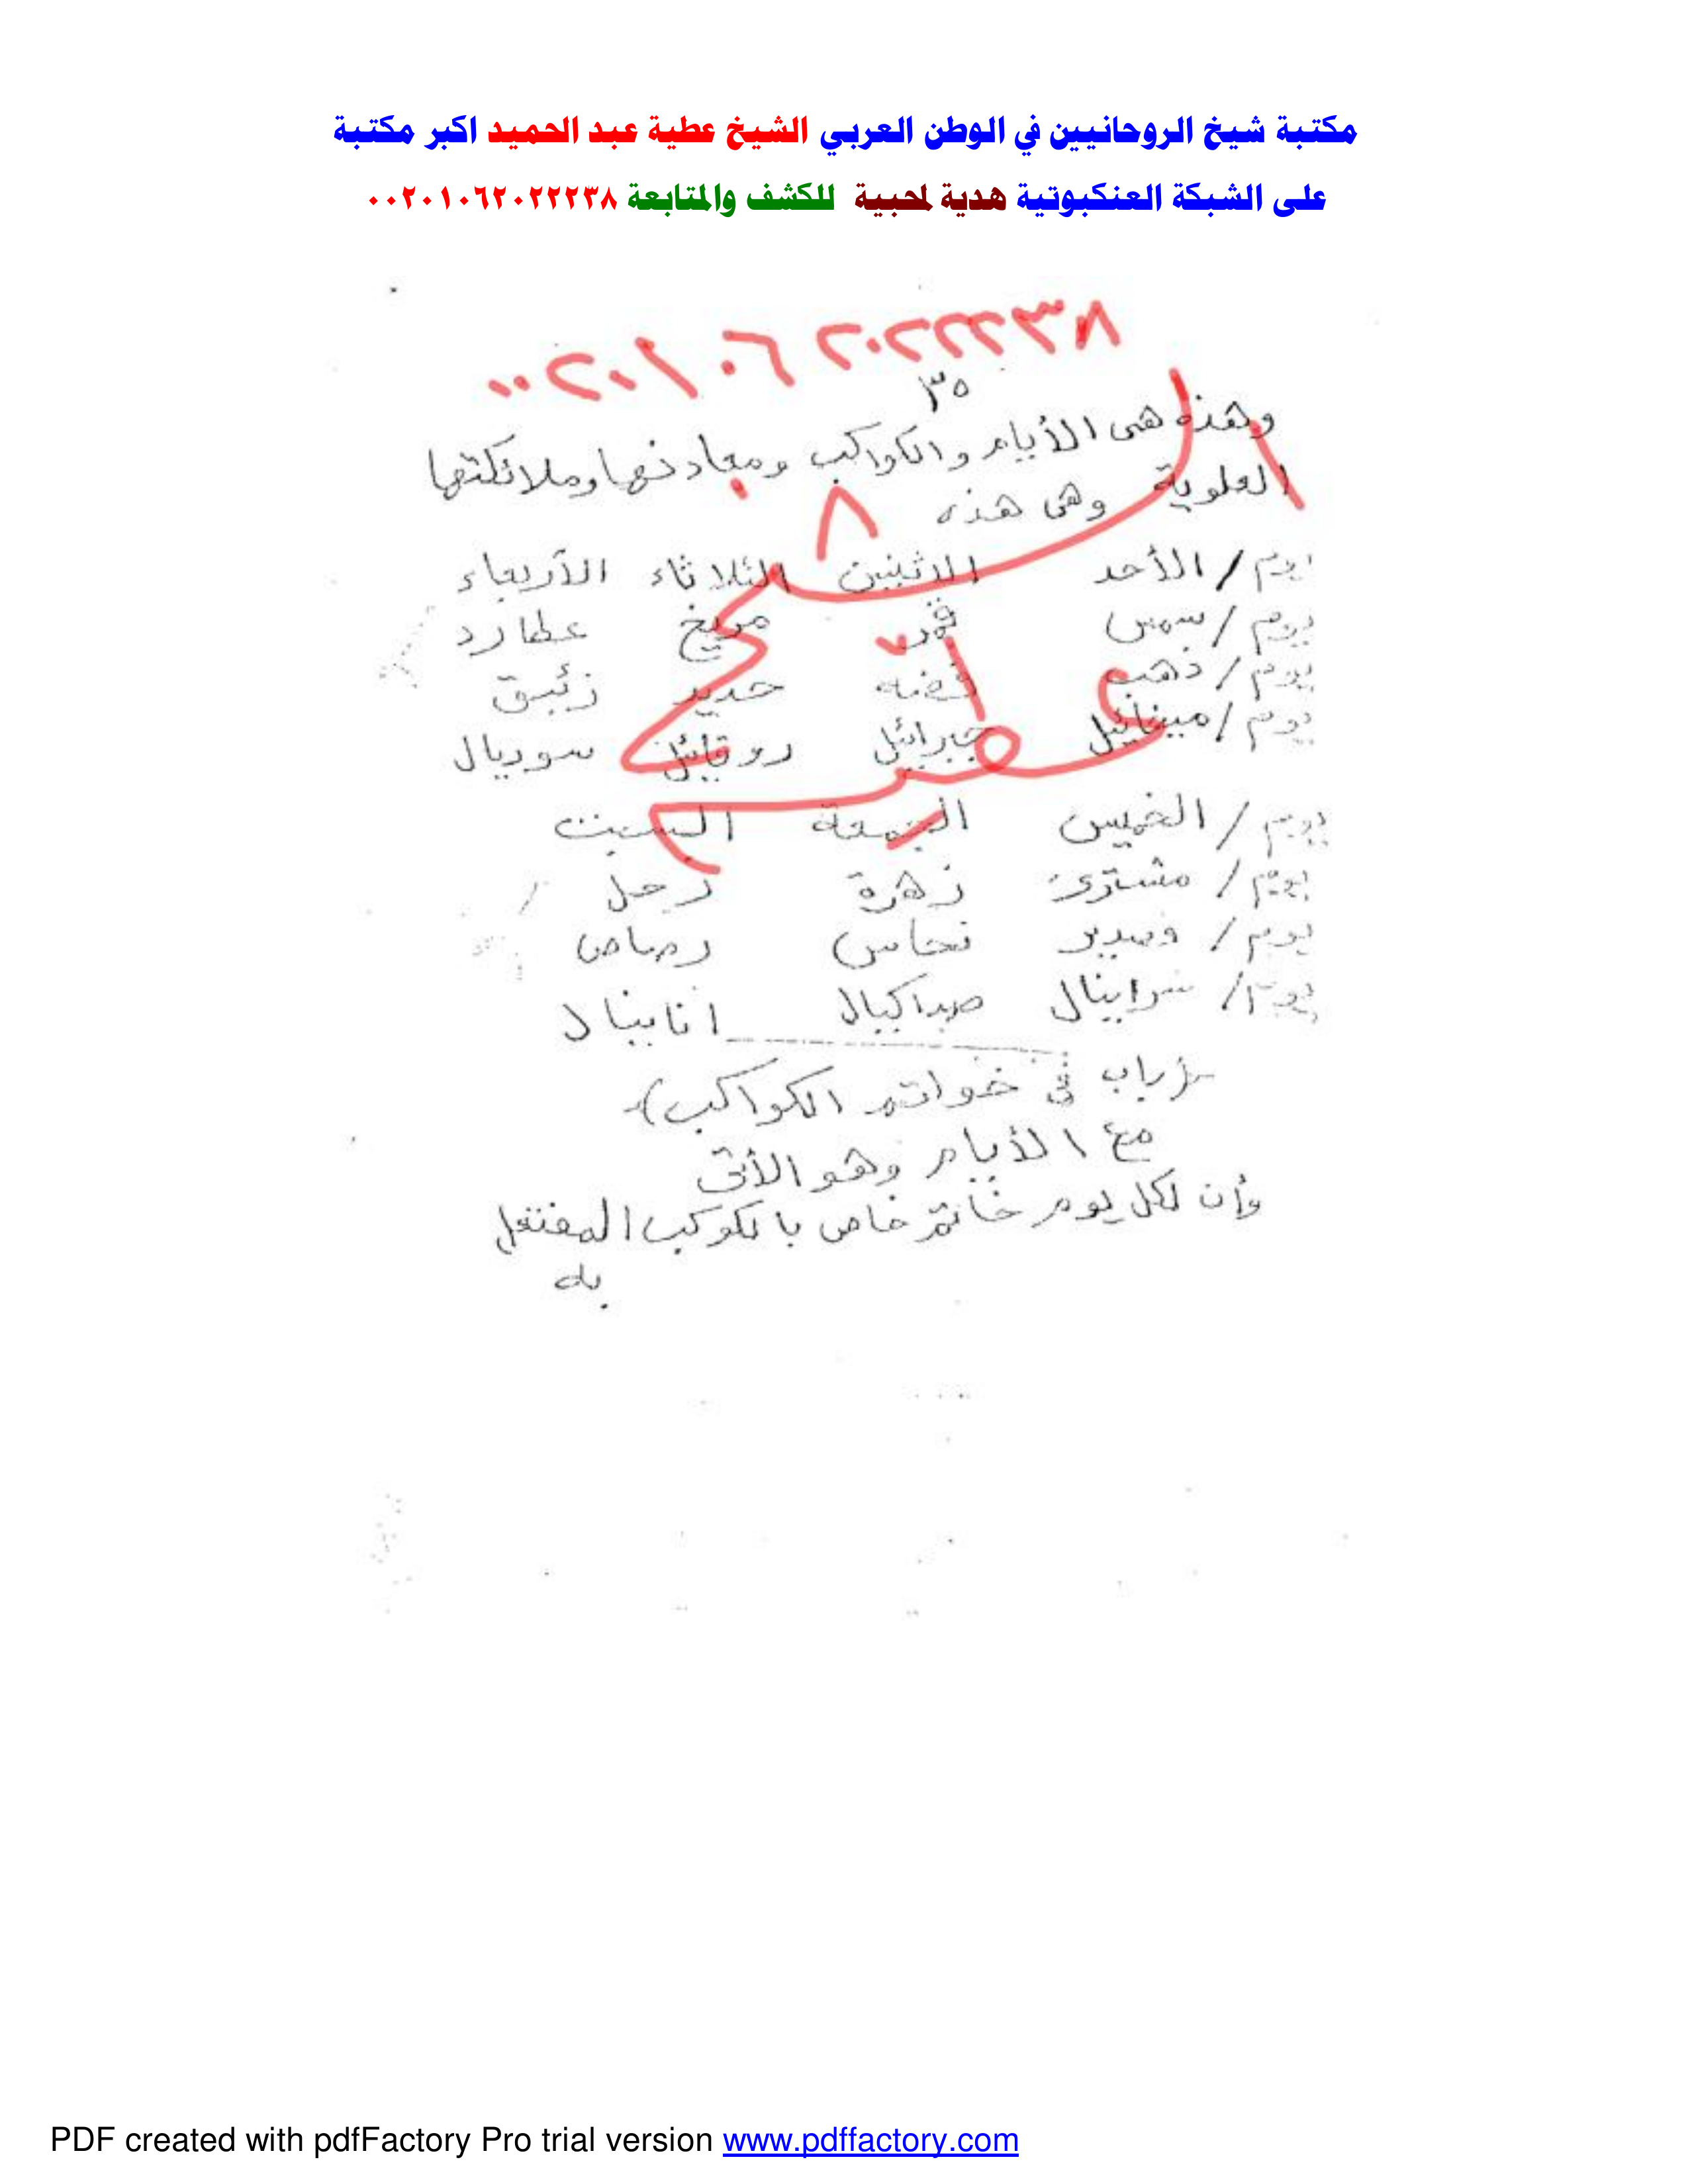 مكتبة شيخ الروحانيين في الوطن العربي الشيخ عطية عبد الحميد اكبر مكتبة
على الشبكة العنكبوتية هدية لمحبية للكشف والمتابعة ٠٠٢٠١٠٦٢٠٢٢٢٣٨
٠٠٢٠١٠٦٢٠٢٢٢٣٨
٣٥
وهذه هى الأيام والكواكب ومعادنها وملائكتها
العلوية وهى هذه ٨
يوم / الأحد الاثنين الثلاثاء الأربعاء
يوم / سمس قمر مريخ عطارد
يوم / ذهب فضه حديد زئبق
يوم / جبرائيل روقائيل سوريال
يوم / الخميس الجمعة السبت
يوم / مشترى زهرة زحل
يوم / نحاس رصاص
يوم / انابينال
باب فى خواتم الكواكب
مع الأيام وهو الأتى
وأن لكل يوم خاتم خاص بالكوكب
به
PDF created with pdfFactory Pro trial version www.pdffactory.com